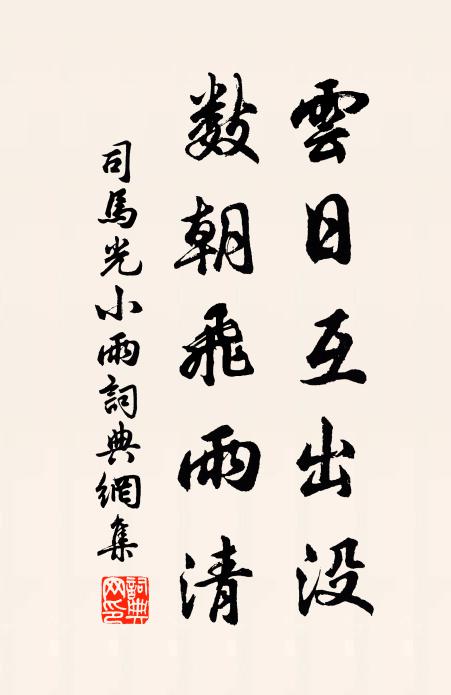 雲日互出没
數朝飛雨清
司馬光小雨詞典網集
詞典網印